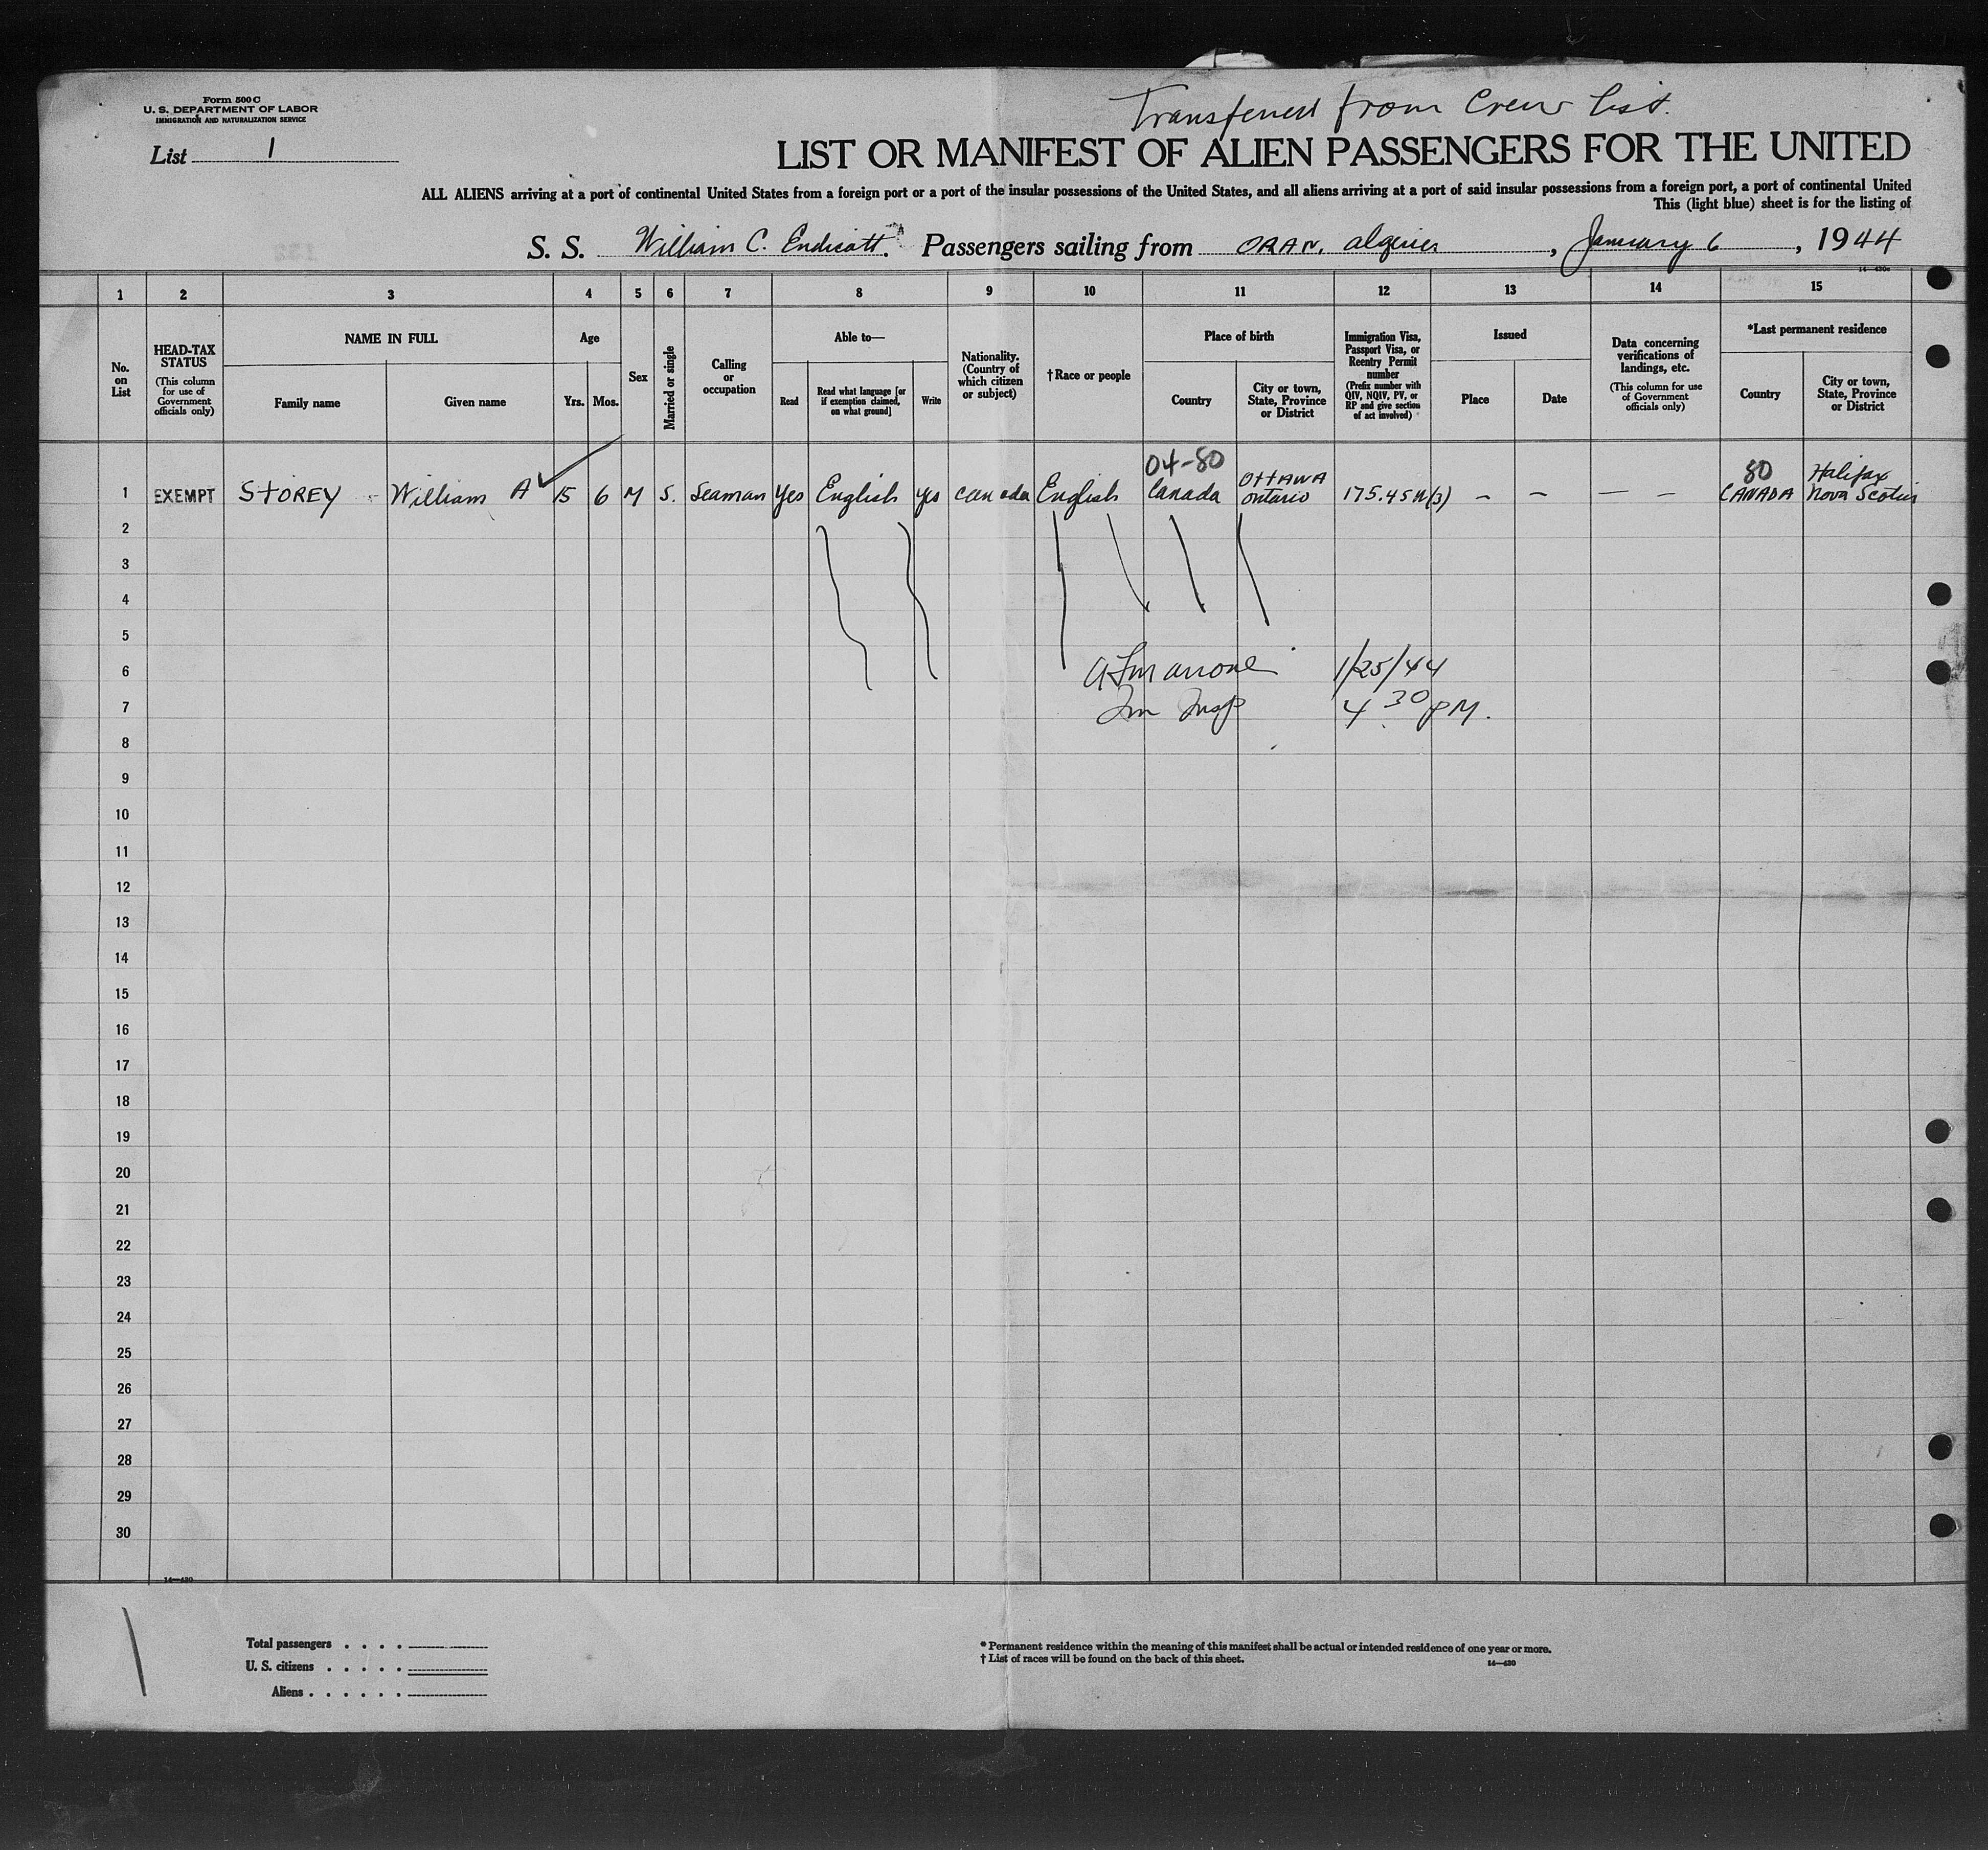 Transferred from Crew list.
Form 500 C
U. S. DEPARTMENT OF LABOR
IMMIGRATION AND NATURALIZATION SERVICE
List 1
LIST OR MANIFEST OF ALIEN PASSENGERS FOR THE UNITED
ALL ALIENS arriving at a port of continental United States from a foreign port or a port of the insular possessions of the United States, and all aliens arriving at a port of said insular possessions from a foreign port, a port of continental United
This (light blue) sheet is for the listing of
S. S. William C. Endicott. Passengers sailing from ORAN, Algeria, January 6, 1944
14—430c
1 2 3 4 5 6 7 8 9 10 11 12 13 14 15
No. on List
HEAD-TAX STATUS
(This column for use of Government officials only)
NAME IN FULL
Family name Given name
Age
Yrs. Mos.
Sex
Married or single
Calling or occupation
Able to—
Read
Read what language [or if exemption claimed, on what ground]
Write
Nationality. (Country of which citizen or subject)
†Race or people
Place of birth
Country
City or town, State, Province or District
Immigration Visa, Passport Visa, or Reentry Permit number
(Prefix number with QIV, NQIV, PV, or RP and give section of act involved)
Issued
Place Date
Data concerning verifications of landings, etc.
(This column for use of Government officials only)
*Last permanent residence
Country
City or town, State, Province or District
04-80 80 Halifax
1 EXEMPT STOREY - William A 15 6 M S. Seaman yes English yes Canada English Canada Ottawa Ontario 175.45 (3) – – — – CANADA Nova Scotia
2
3
4
5
6 1/25/44
7 Im Insp 4 30 PM.
8
9
10
11
12
13
14
15
16
17
18
19
20
21
22
23
24
25
26
27
28
29
30
14—430
Total passengers . . . .
U. S. citizens . . . . .
Aliens . . . . . .
* Permanent residence within the meaning of this manifest shall be actual or intended residence of one year or more.
† List of races will be found on the back of this sheet.
14—430